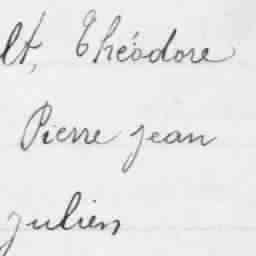 lt, Théodore
Pierre jean
julien